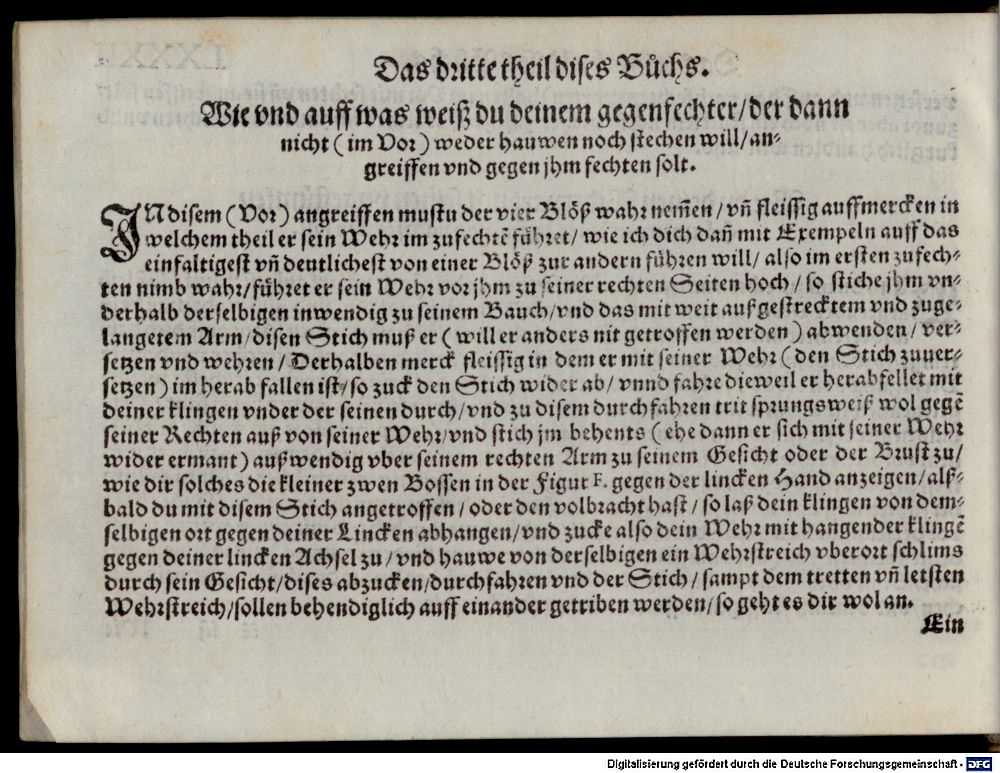 Das dritte theil dises Bůchs.
Wie vnd auff was weiß du deinem gegenfechter/der dann
nicht (im Vor) weder hauwen noch stechen will/an-
greiffen vnd gegen jhm fechten solt.
INdisem (Vor) angreiffen mustu der vier Blöß wahr nem̃en/vñ fleissig auffmercken in
welchem theil er sein Wehr im zufechtẽ führet/ wie ich dich dañ mit Exempeln auff das
einfaltigest vñ deutlichest von einer Blöß zur andern führen will/ also im ersten zufech-
ten nimb wahr/führet er sein Wehr vor jhm zu seiner rechten Seiten hoch/ so stiche jhm vn-
derhalb derselbigen inwendig zu seinem Bauch/vnd das mit weit außgestrecktem vnd zuge-
langetem Arm/disen Stich muß er (will er anders nit getroffen werden) abwenden/ ver-
setzen vnd wehren/ Derhalben merck fleissig in dem er mit seiner Wehr (den Stich zuuer-
setzen) im herab fallen ist/so zuck den Stich wider ab/ vnnd fahre dieweil er herabfellet mit
deiner klingen vnder der seinen durch/vnd zu disem durchfahren trit sprungsweiß wol gegẽ
seiner Rechten auß von seiner Wehr/vnd stich jm behents (ehe dann er sich mit seiner Wehr
wider ermant) außwendig vber seinem rechten Arm zu seinem Gesicht oder der Brust zu/
wie dir solches die kleiner zwen Bossen in der Figur F. gegen der lincken Hand anzeigen/alß-
bald du mit disem Stich angetroffen/ oder den volbracht hast/ so laß dein klingen von dem-
selbigen ort gegen deiner Lincken abhangen/vnd zucke also dein Wehr mit hangender klingẽ
gegen deiner lincken Achsel zu/ vnd hauwe von derselbigen ein Wehrstreich vberort schlims
durch sein Gesicht/dises abzucken/durchfahren vnd der Stich/ sampt dem tretten vñ letsten
Wehrstreich/sollen behendiglich auff einander getriben werden/so geht es dir wol an.
Ein
Digitalisierung gefördert durch die Deutsche Forschungsgemeinschaft - DFG